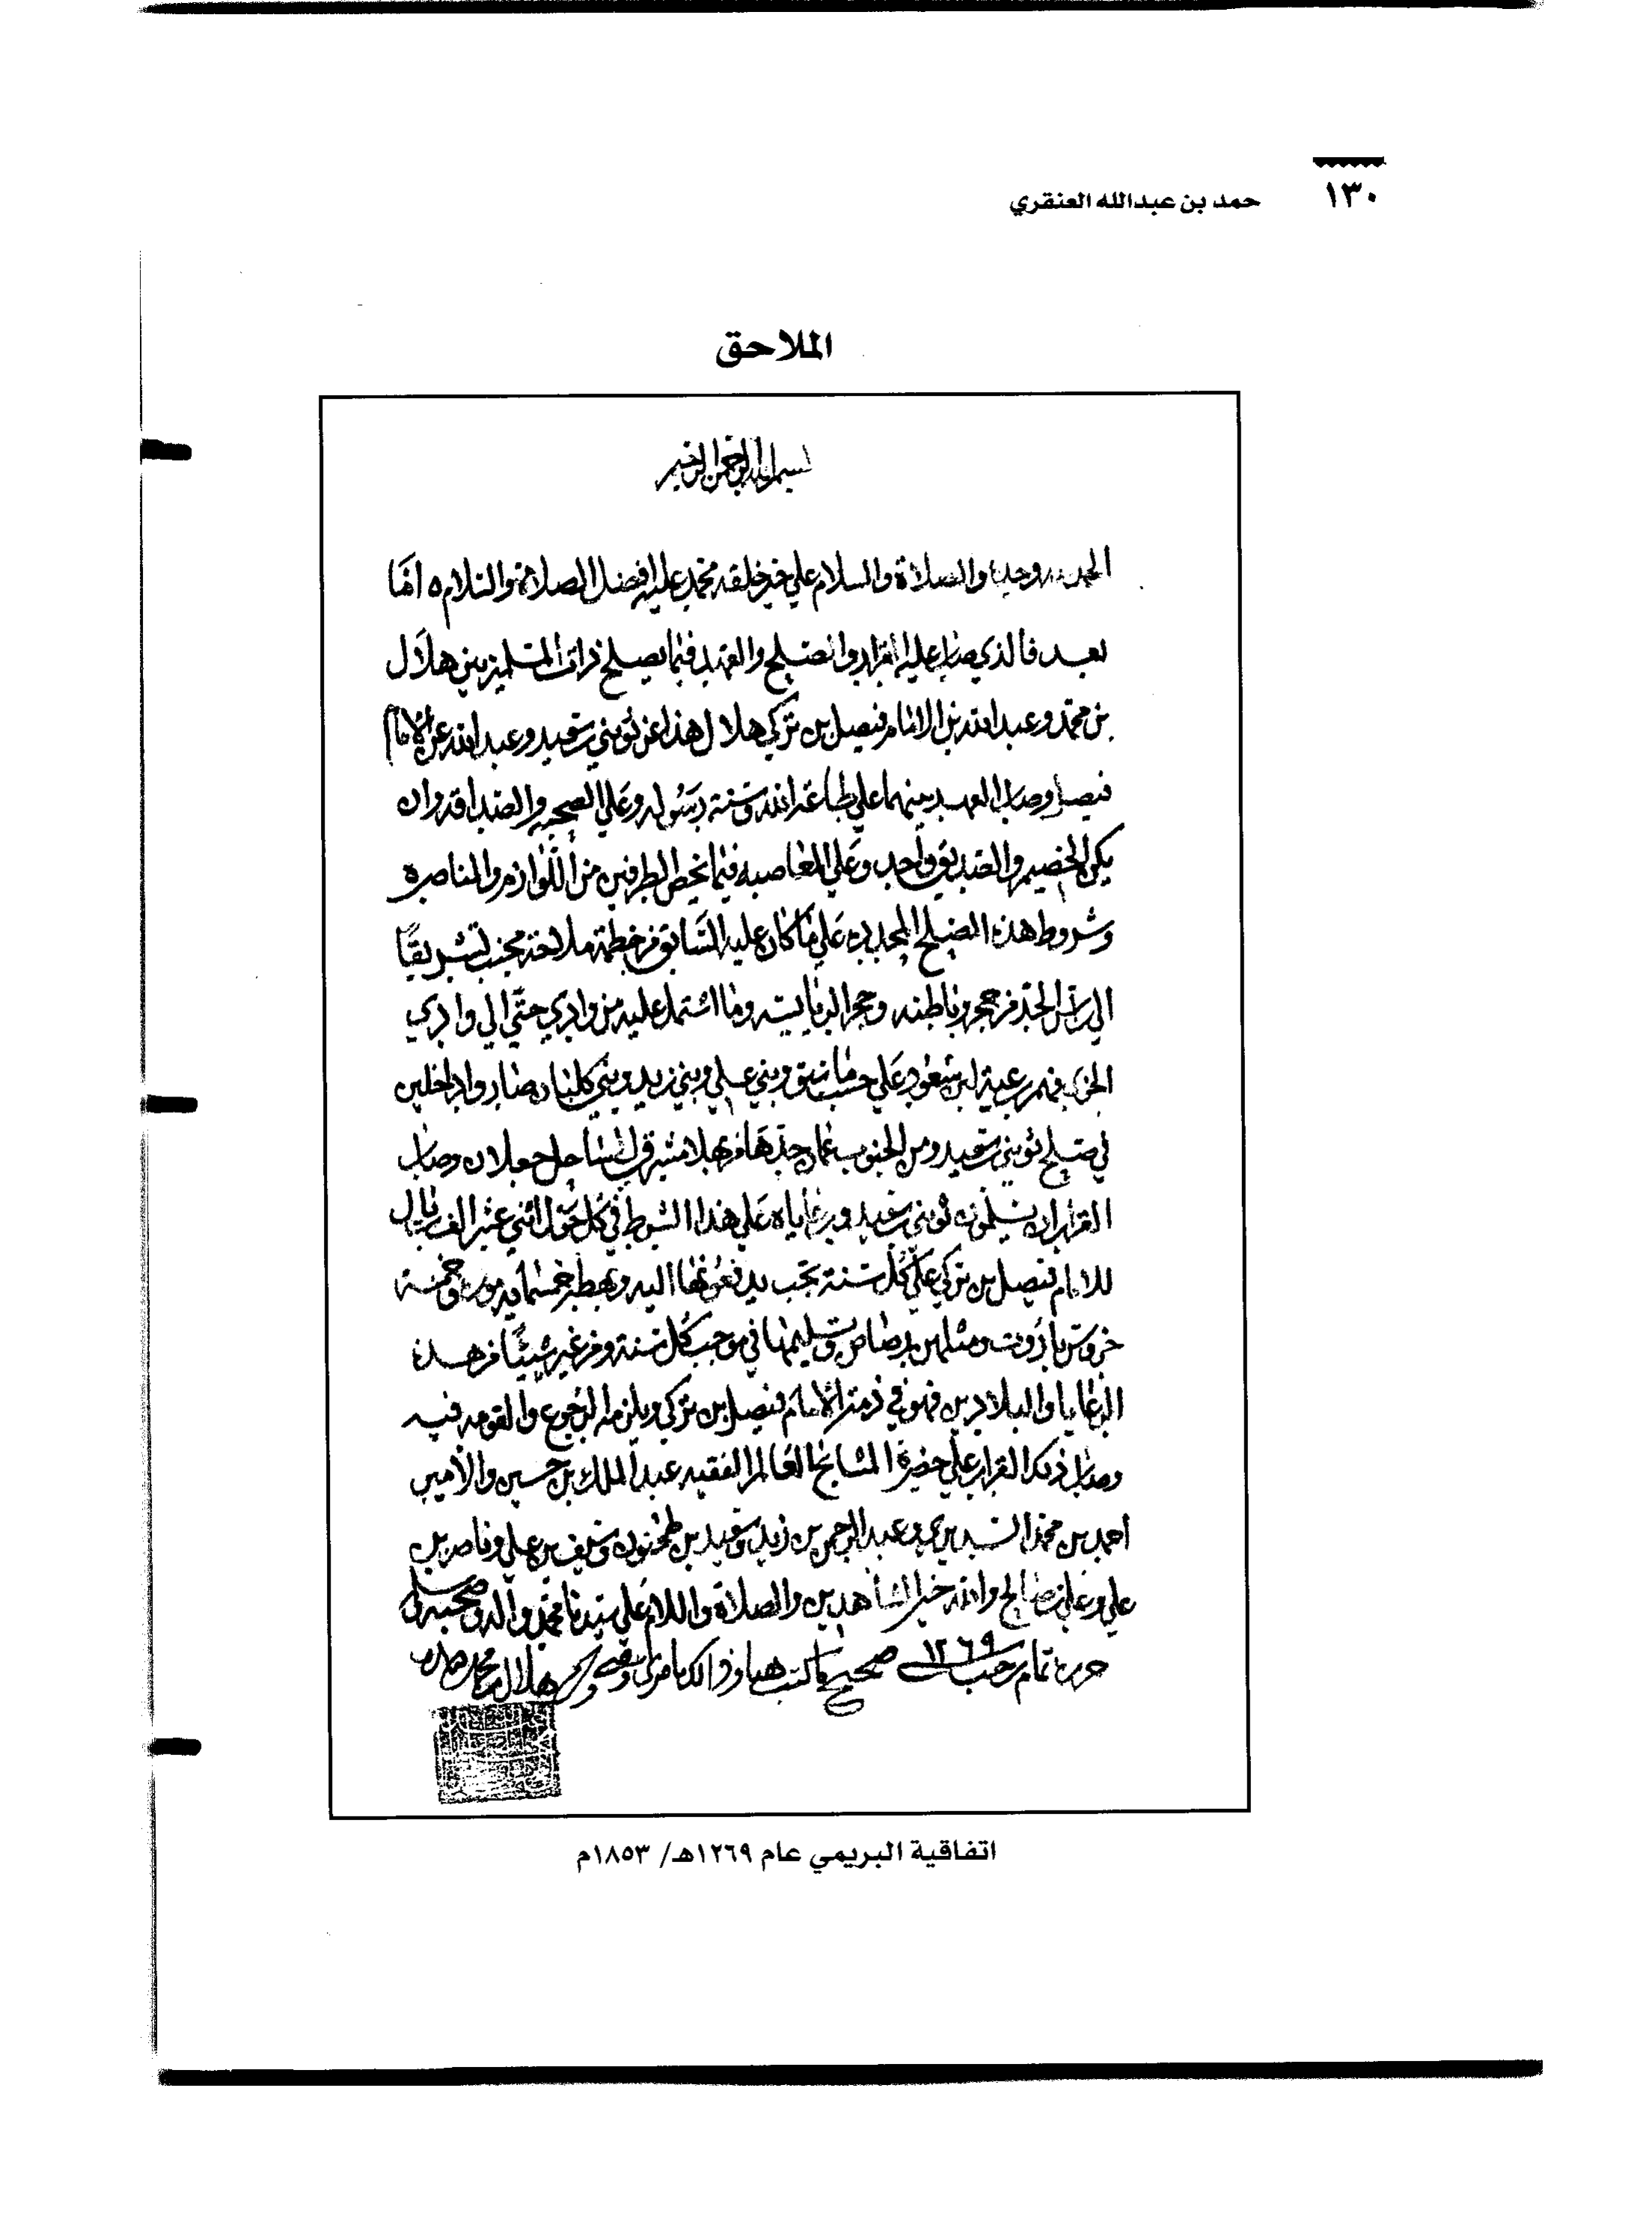 ١٣٠
حمد بن عبدالله العنقري
الملاحق
بسم الله الرحمن الرحيم
الحمد لله وحده والصلاة والسلام علي خير خلقه محمد عليه افضل الصلاة والسلام ه امّا
بعد فالذي صار عليه القرار والصلح والعهد فيما يصلح ذات المسلمين بين هلال
بن محمد وعبد الله بن الامام فيصل بن تركي هلال هذا عن ثويني بن سعيد وعبد الله عن الامام
فيصل وصار العهد بينهما علي طاعة الله وسنة رسوله وعلي الصحبه والصداقه وان
يكن الخصيم والصديق واحد وعلي المعاصبه فيما يخص الطرفين من اللوازم والمناصره
وشروط هذه الصلح المجدده علي ما كان عليه السابق من خطمة ملاحة تشريقًا
الي راس الحد من حجر وباطنه وحجر وما اشتمل عليه من وادي حتّي الي وادي
فهم رعية ابن سعود علي حسب ما سبق وبني علي وبني زيد وبني كلبان صاروا داخلين
في صلح ثويني بن سعيد ومن الجنوب عمان حدها من بهلا مشرق الي ساحل جعلان وصار
القرار ان يسلمون ثويني بن سعيد ورعاياه علي هذا الشرط في كل حول اثني عشر الف ريال
للامام فيصل بن تركي علي كل سنة يدفعونها اليه خمسماية وخمسة
خروس باروت ومثلهن رصاص وتسليمها في موجب كل سنة ومن غير شيئًا من هذه
الرعايا والبلادين فهو في ذمة الامام فيصل بن تركي ويلزمه الرجوع والقومه فيه
وصار ذلك القرار علي حضرة المشايخ العالم الفقيه عبد الملك بن حسين والامير
احمد بن محمد السديري وعبد الرحمن بن زيد وسعيد بن طحنون وسيف بن علي وناصر بن
علي وعلي بن صالح والله خير الشاهدين والصلاة والسلام علي سيدنا محمد واله وصحبه وسلم
حرر تمام رجب ١٢٦٩ صحيح ما كتب هنا وذالك بامري هلال بن محمد
اتفاقية البريمي عام ١٢٦٩هـ/ ١٨٥٣م